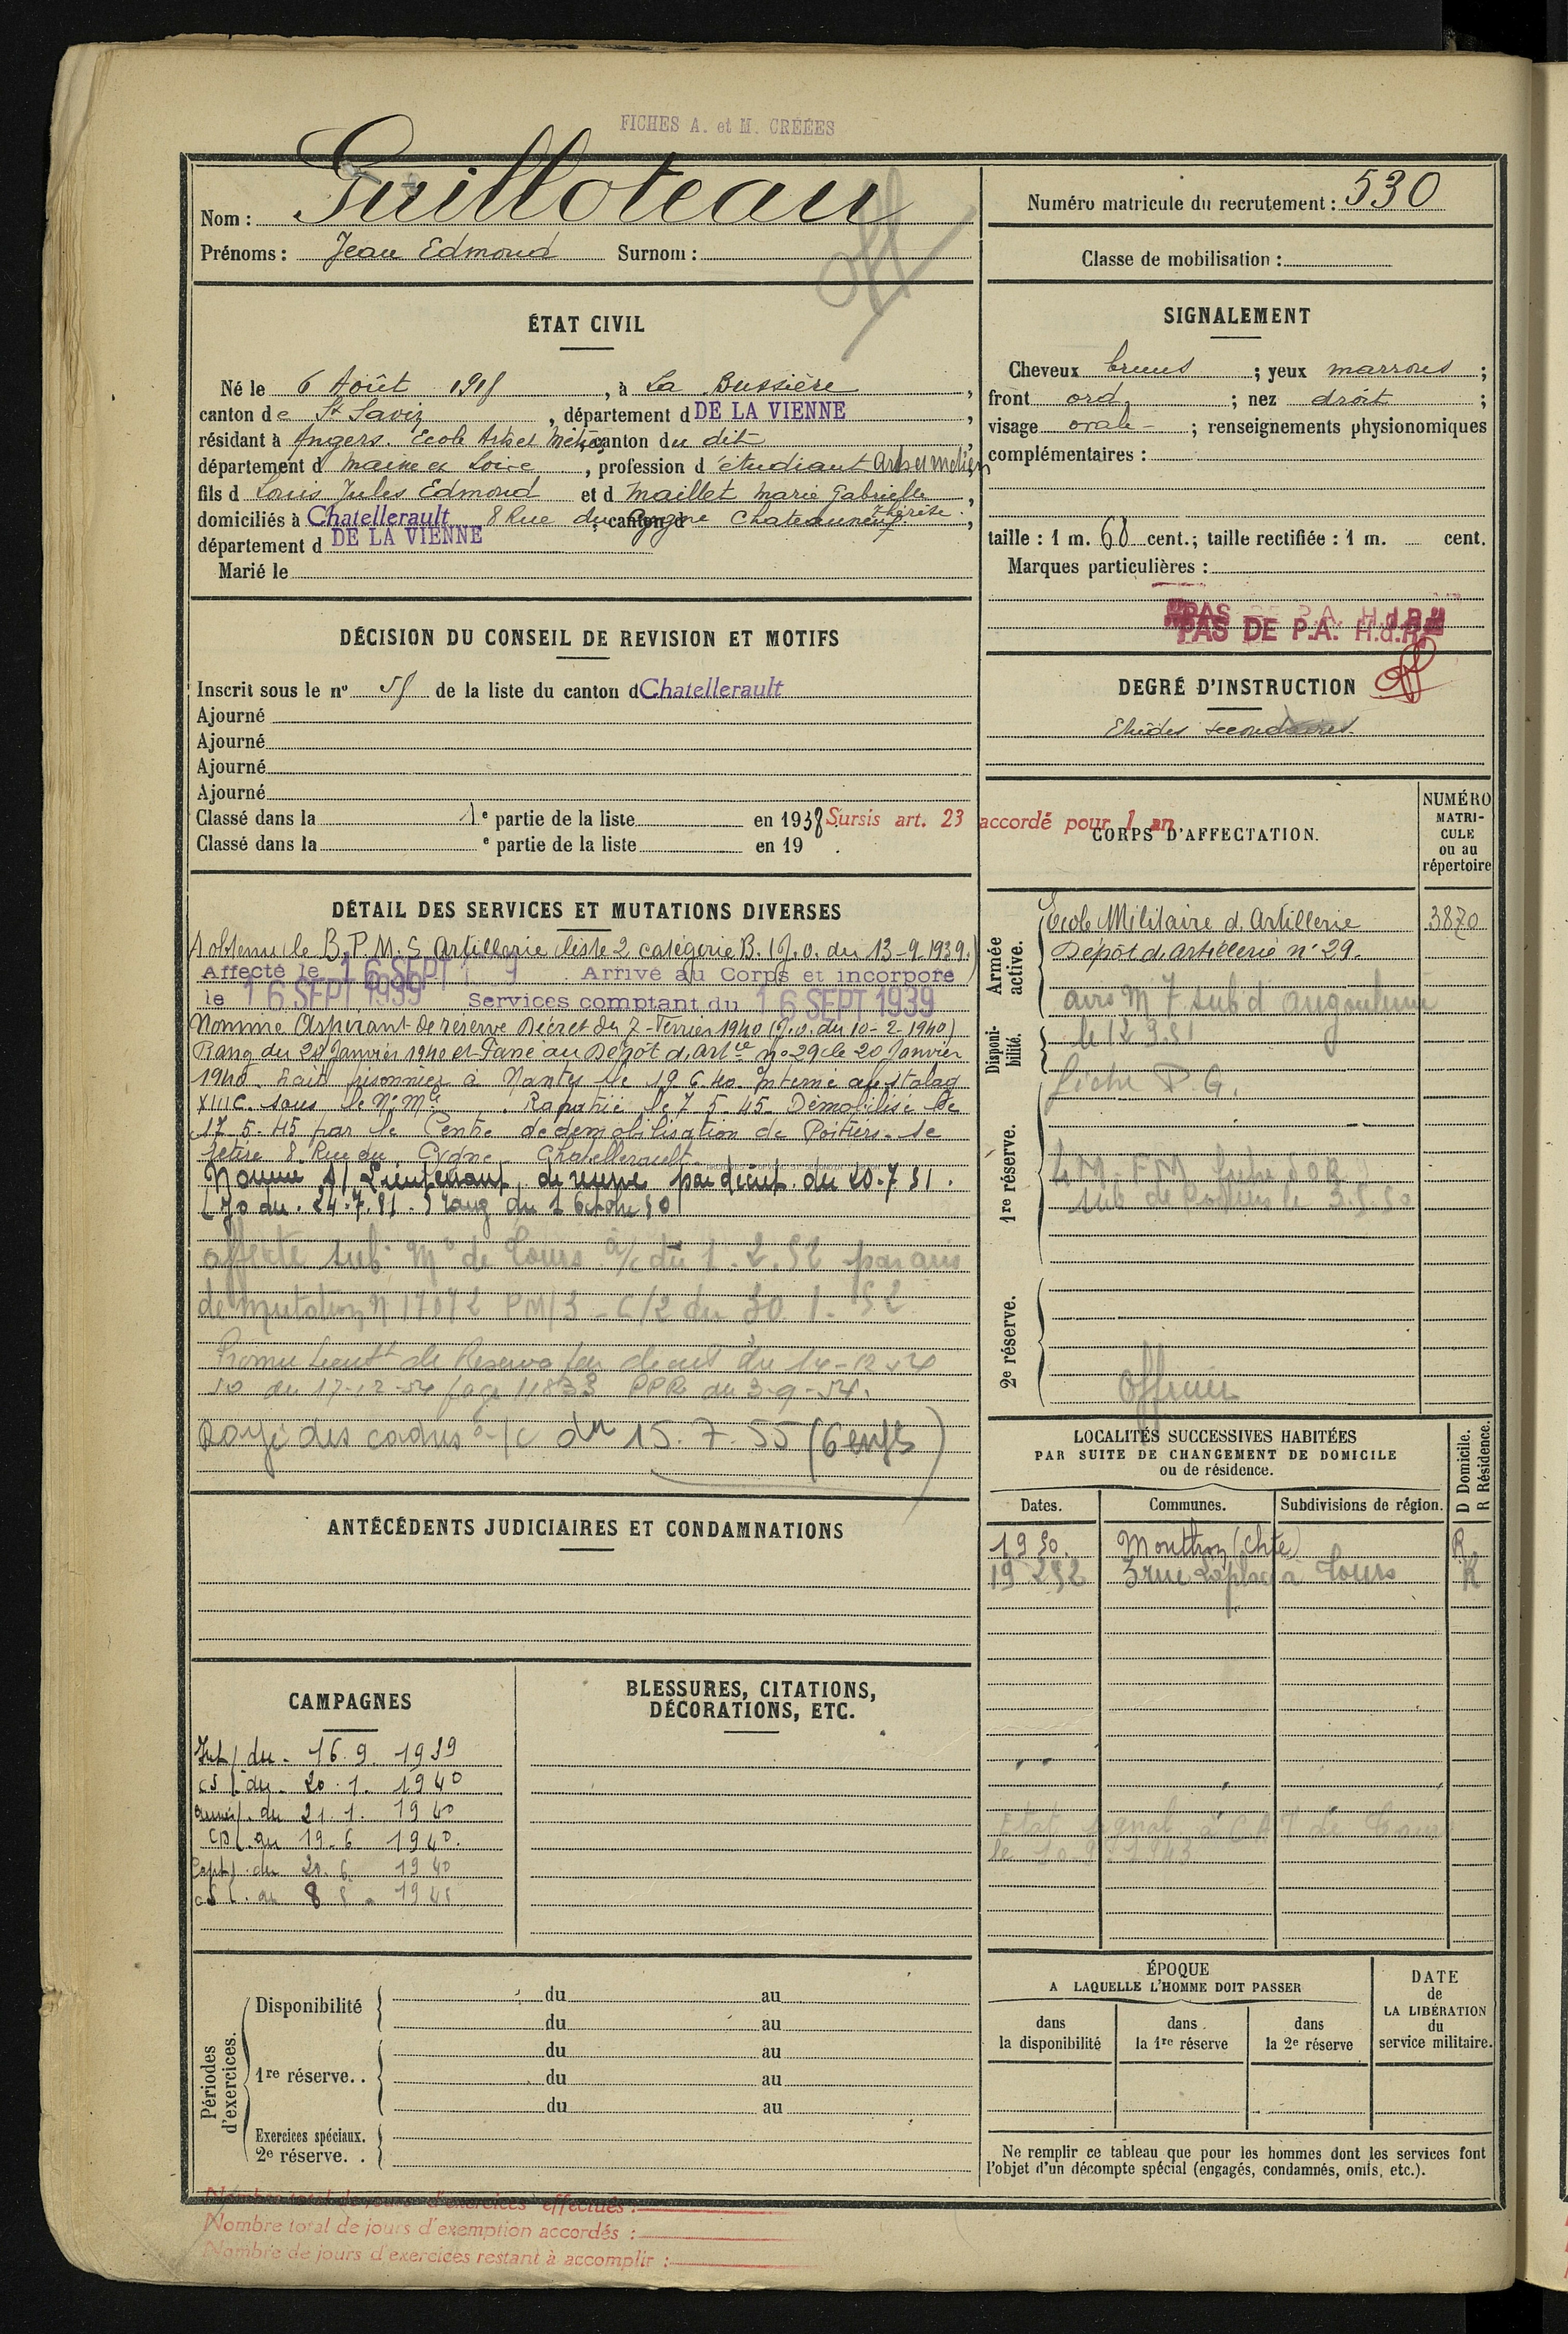 FICHES A. et M. CRÉÉES
Nom : Guilloteau
Prénoms : Jean Edmond Surnom :
off
ÉTAT CIVIL
Né le 6 Août 1918, à La Bussière,
canton de St Savin, département d DE LA VIENNE,
résidant à Angers. Ecole Arts et Métiers, canton du dit
département d Maine et Loire, profession d étudiant Arts et Métiers
fils d Louis Jules Edmond et d Maillet Marie Gabrielle
Thérèse.
domiciliés à Chatellerault 8 Rue du Cygne, canton d Chateauneuf,
département d DE LA VIENNE
Marié le
DÉCISION DU CONSEIL DE REVISION ET MOTIFS
Inscrit sous le nº de la liste du canton d Chatellerault
Ajourné
Ajourné
Ajourné
Ajourné
Classé dans la 1e partie de la liste en 1938 Sursis art. 23 accordé pour 1 an
Classé dans la e partie de la liste en 19 .
DÉTAIL DES SERVICES ET MUTATIONS DIVERSES
A obtenu le B.P.M.S Artillerie liste 2 catégorie B. (J.O. du 13-9-1939.)
Affecté le 16 SEPT 1 9 . Arrivé au Corps et incorporé
le 16 SEPT 1939 Services comptant du 16 SEPT 1939
Nommé Aspirant de réserve Décret du 7 Février 1940 (J.O. du 10-2-1940)
Rang du 20 Janvier 1940 et au Dépôt d'Artie nº 29 le 20 Janvier
1940. Fait prisonnier à Nantes le 19 6 40. Interné au Stalag
XIIIC. sous le Nº Mle . Rapatrié le 7 5-45- Démobilisé le
17-5-45 par le Centre de démobilisation de Poitiers. Se
retire 8 Rue du Cygne Chatellerault.
Nommé S/Lieutenant de réserve par décret du 20.7 51.
(JO du. 24.7.51.) rang du 1 Octobre 50
affecté sub. Mre de Tours à/c du 1.2.52 par avis
de mutation N 17072 PM/3 - C/2 du 30.1.52
Promu Lieutt de Réserve par décret du 14-12-54
JO du 17-12-54 page 11833 PPR du 3-9-54.
Rayé des cadres à/c du 15.7.55 (6 enfts)
ANTÉCÉDENTS JUDICIAIRES ET CONDAMNATIONS
CAMPAGNES
Int/ du - 16.9. 1939
CS / du - 20.1. 1940
du 21.1. 1940
au 19.6 1940.
Capt/ du 20.6. 1940
au 8 5 - 1945
BLESSURES, CITATIONS,
DÉCORATIONS, ETC.
Périodes d'exercices.
Disponibilité du au
du au
1re réserve. . du au
du au
du au
Exercices spéciaux.
2e réserve. .
Nombre total de jours d'exercices effectués :
Nombre total de jours d'exemption accordés :
Nombre de jours d'exercices restant à accomplir :
Numéro matricule du recrutement : 530
Classe de mobilisation :
SIGNALEMENT
Cheveux bruns ; yeux marrons ;
front ord. ; nez droit ;
visage ovale ; renseignements physionomiques
complémentaires :
taille : 1 m. 68 cent.; taille rectifiée : 1 m. cent.
Marques particulières :
PAS DE P.A. H.d.R.
PAS DE P.A. H.d.R.
DEGRÉ D'INSTRUCTION off
Etudes secondaires.
CORPS D'AFFECTATION.
NUMÉRO MATRI-CULE ou au répertoire
Armée active.
Ecole Militaire d'Artillerie 3870
Dépôt d'Artillerie nº 29.
avis M 7 subd Angoulême
Disponi-bilité.
le 12 3.51
fiche P.G.
1re réserve.
sub de Poitiers le 3.5.50
2e réserve.
Officier
LOCALITÉS SUCCESSIVES HABITÉES
PAR SUITE DE CHANGEMENT DE DOMICILE
ou de résidence.
D Domicile.
R Résidence.
Dates. Communes. Subdivisions de région.
1950. Mouthon (Chte) R
19 2 52 3 rue Laplace à Tours R
Etat signal. à de Tours
le
ÉPOQUE
A LAQUELLE L'HOMME DOIT PASSER
dans la disponibilité
dans la 1re réserve
dans la 2e réserve
DATE de LA LIBÉRATION du service militaire.
Ne remplir ce tableau que pour les hommes dont les services font
l'objet d'un décompte spécial (engagés, condamnés, omis, etc.).